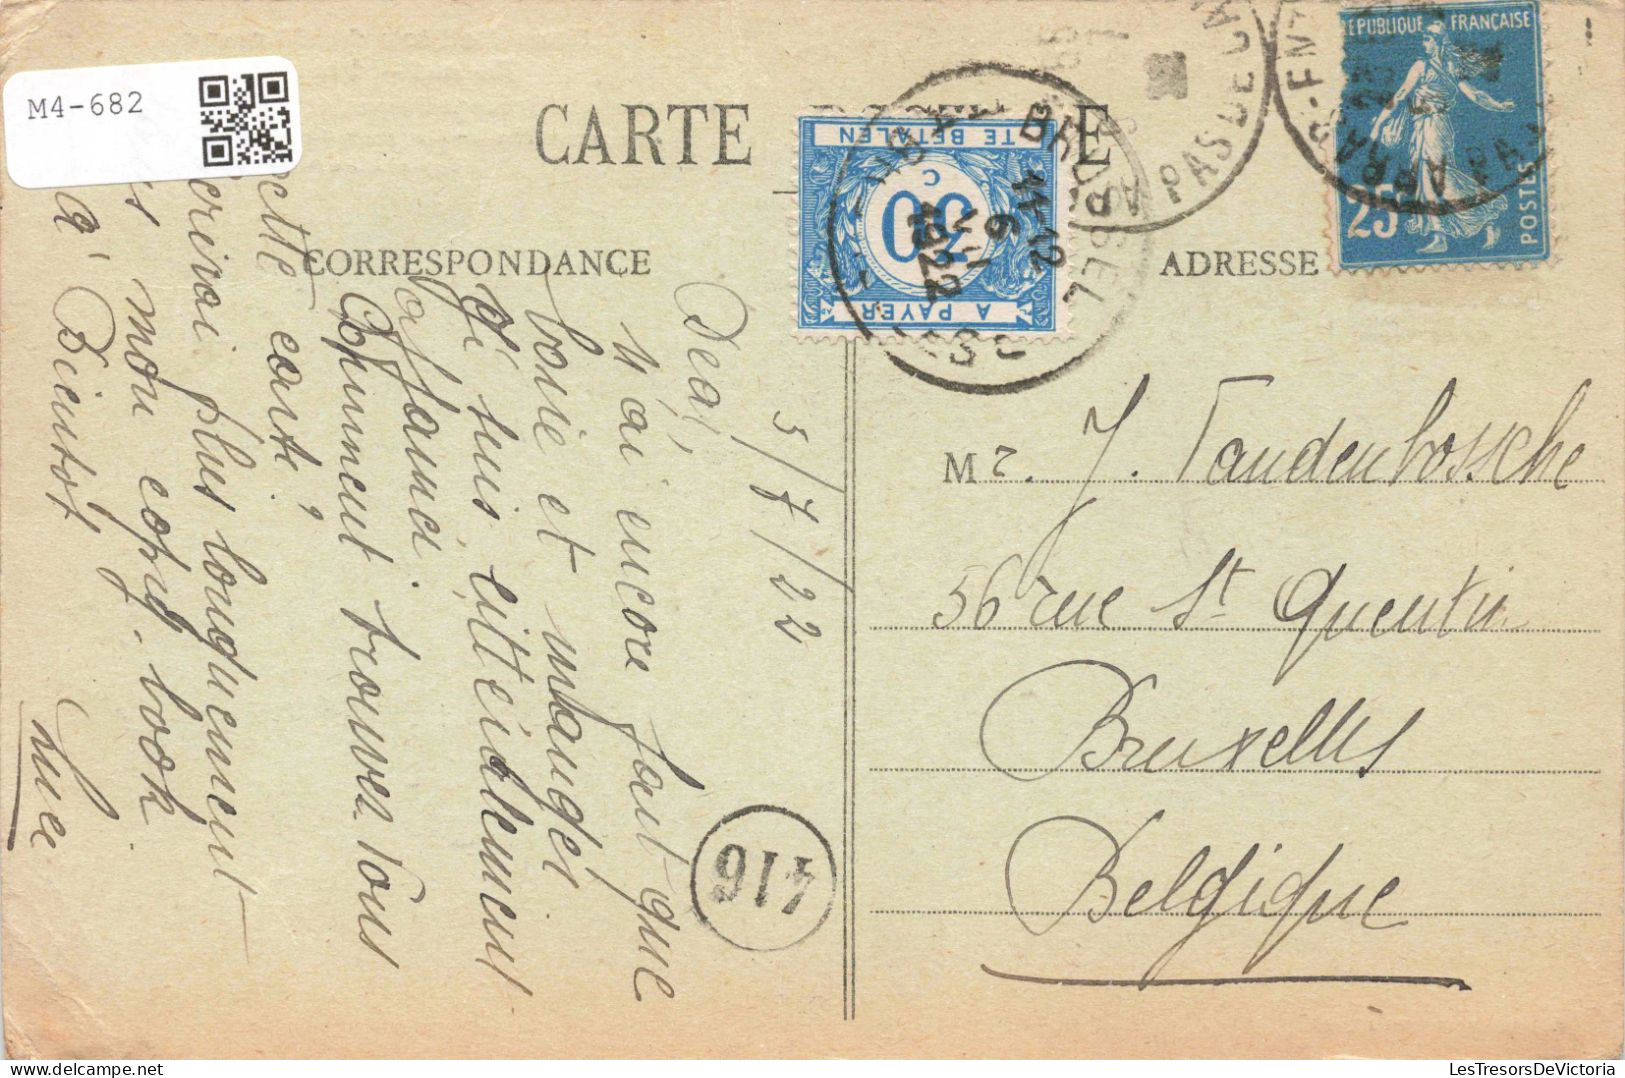 M4-682
CARTE POSTALE
CORRESPONDANCE
ADRESSE
RÉPUBLIQUE FRANÇAISE
25
POSTES
TE BETALEN
30
C
A PAYER
11-12
6
VII
1922
PAS DE CALAIS
ARRAS
416
5/7/22
Dear,
n'ai encore fait que
boire et manger
suis
affamé.
Comment trouvez vous
cette carte,
écrirai plus longuement
mon copy-book
à Bientôt
Luce
Mr. J. Vandenbossche
56 rue St Quentin
Bruxelles
Belgique
LesTresorsDeVictoria.com